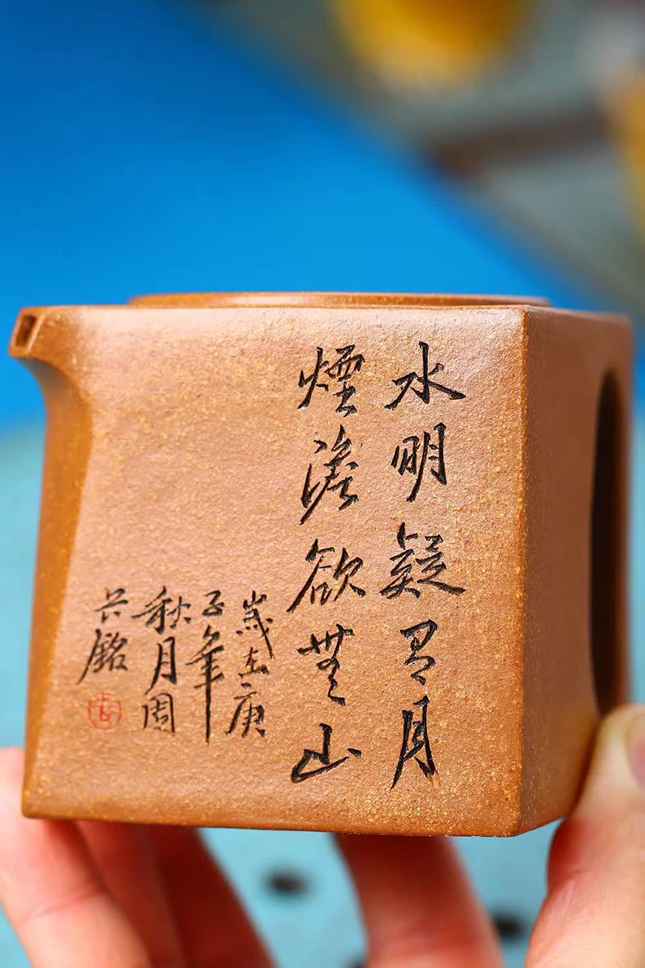 水明疑有月
煙澹欲無山
歲在庚
子年
秋月周
銘